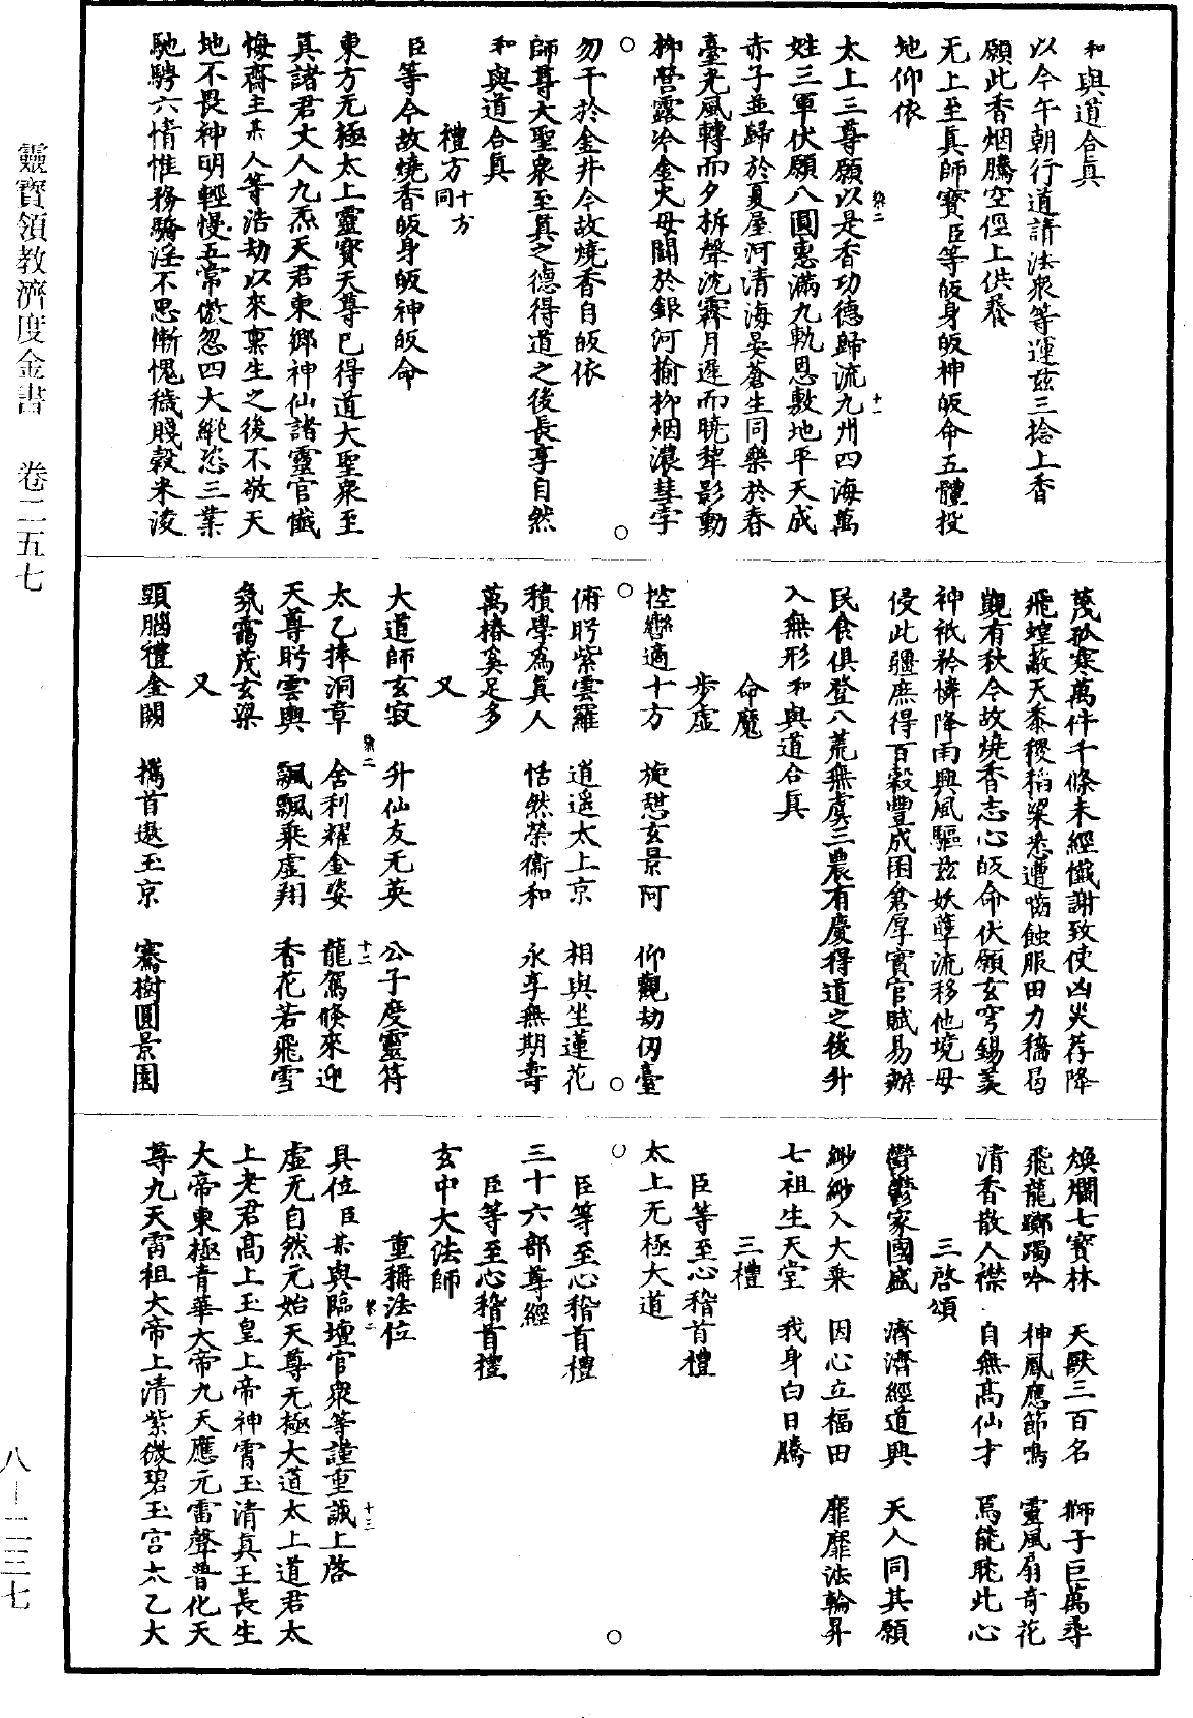 和與道合真
以今午朝行道請法衆等運兹三捻上香
願此香烟騰空徑上供養
无上至真師寳臣等皈身皈神皈命五體投
地仰依
太上三尊願以是香功德歸流九州四海萬
姓三軍伏願八圓惠滿九軌恩敷地平天成
赤子並歸於夏屋河清海晏蒼生同樂於春
臺光風轉而夕柝聲沈霽月遲而曉犂影動
柳營露冷金火毋鬭於銀河榆柳烟濃彗孛
勿干於金井今故燒香自皈依
師尊大聖衆至真之德得道之後長享自然
和與道合真
禮方十方同
臣等今故燒香皈身皈神皈命
東方无極太上靈寳天尊已得道大聖衆至
真諸君丈人九炁天君東鄉神仙諸靈官懺
悔齋主某人等浩劫以來禀生之後不敬天
地不畏神明輕慢五常傲忽四大縱恣三業
馳騁六情惟務驕淫不思慚愧穢賤穀米凌
茂孤寒萬件千條未經懺謝致使凶災荐降
飛蝗蔽天黍稷稻粱悉遭嚙蝕服田力穡曷
覬有秋今故燒香志心皈命伏願玄穹錫羡
神祇矜憐降雨興風驅兹妖孽流移他境毋
侵此疆庶得百穀豐成囷倉厚實官賦易辦
民食俱登八荒無虞三農有慶得道之後升
入無形和與道合真
命魔
步虛
控轡適十方 旋憩玄景阿 仰觀劫仞臺
俯眄紫雲羅 逍遥太上京 相與坐蓮花
積學為真人 恬然榮衛和 永享無期壽
萬椿奚足多
又
大道師玄寂 升仙友无英 公子度靈符
太乙捧洞章 舍利耀金姿 龍駕倏來迎
天尊眄雲輿 飄飄乘虛翔 香花若飛雪
氛靄茂玄梁
又
頭腦禮金闕 攜首遨玉京 騫樹圓景園
煥爛七寳林 天獸三百名 獅子巨萬尋
飛龍躑躅吟 神鳳應節鳴 靈風扇奇花
清香散人襟 自無高仙才 焉能耽此心
三啓頌
鬱鬱家國盛 濟濟經道興 天人同其願
緲緲入大乘 因心立福田 靡靡法輪昇
七祖生天堂 我身白日騰
三禮
臣等至心稽首禮
太上无極大道
臣等至心稽首禮
三十六部尊經
臣等至心稽首禮
玄中大法師
重稱法位
具位臣某與臨壇官衆等謹重誠上啓
虛无自然元始天尊无極大道太上道君太
上老君高上玉皇上帝神霄玉清真王長生
大帝東極青華大帝九天應元雷聲普化天
尊九天雷祖大帝上清紫微碧玉宫太乙大
靈寳領教濟度金書 卷二五七
八—二三七